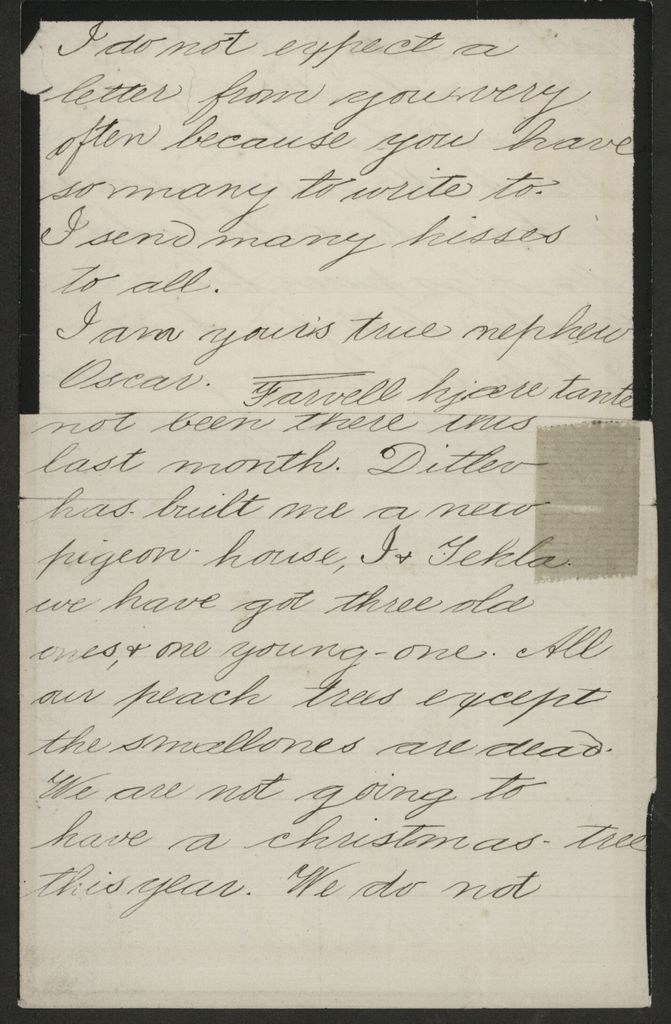 I do not expect a
letter from you very
often because you have
so many to write to.
I send many kisses
to all.
I am your's true nephew
Oscar. Farvell hjære tante
not been there this
last month. Ditlev
has built me a new
pigeon-house, I & Tehla
we have got three old
ones, & one young-one. All
our peach trees except
the smallones are dead.
We are not going to
have a christmas-tree
this year. We do not